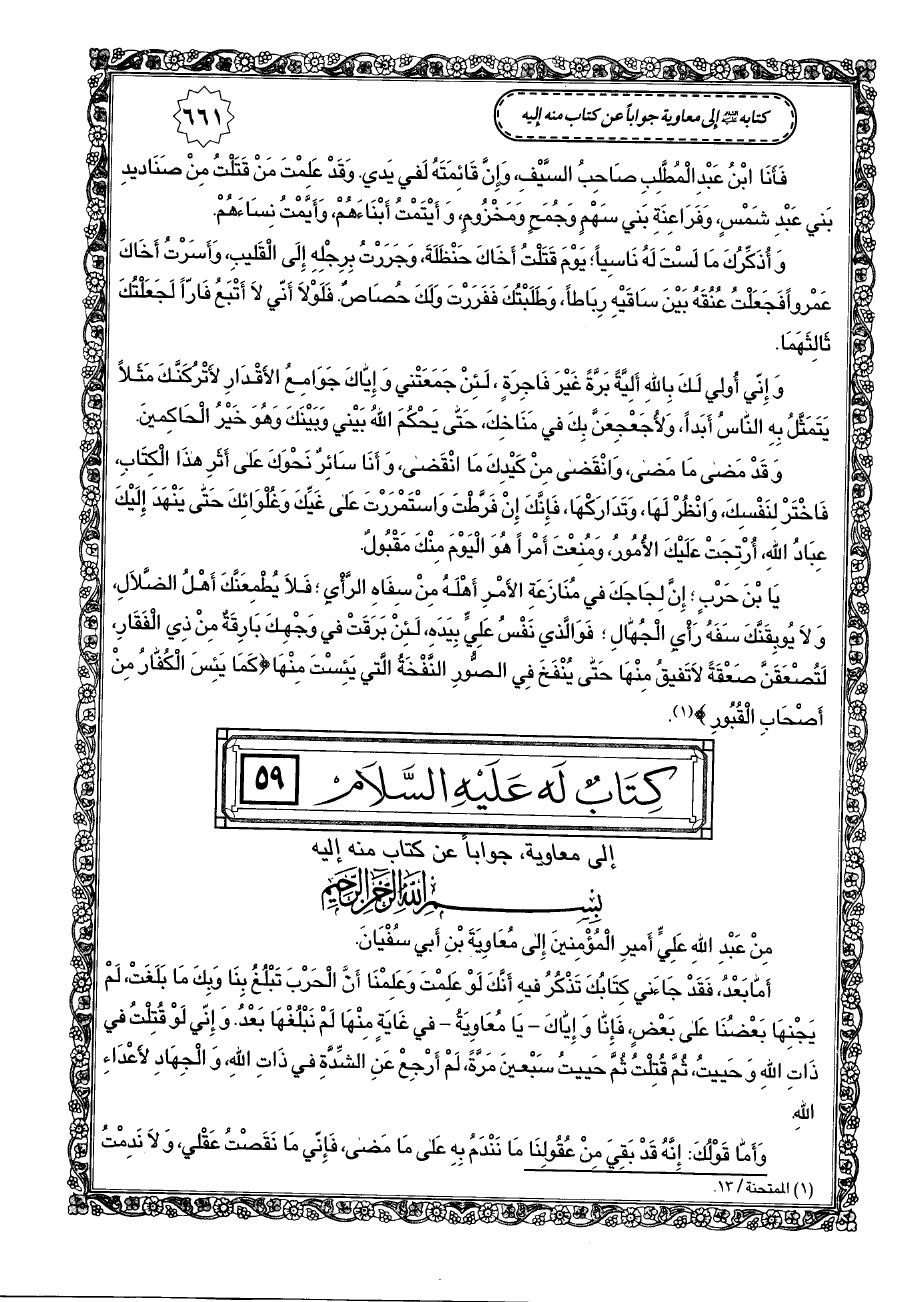 كتابه عليه السلام إلى معاوية جواباً عن كتاب منه إليه
٦٦١
فَأَنَا ابْنُ عَبْدِ الْمُطَّلِبِ صَاحِبُ السَّيْفِ، وَإِنَّ قَائِمَتَهُ لَفي يَدي. وَقَدْ عَلِمْتَ مَنْ قَتَلْتُ مِنْ صَنَاديدِ
بَني عَبْدِ شَمْسٍ، وَفَرَاعِنَةِ بَني سَهْمٍ وَجُمَحٍ وَمَخْزُومٍ، وَ أَيْتَمْتُ أَبْنَاءَهُمْ، وَأَيَّمْتُ نِسَاءَهُمْ.
وَ أُذَكِّرُكَ مَا لَسْتَ لَهُ نَاسِياً؛ يَوْمَ قَتَلْتُ أَخَاكَ حَنْظَلَةَ، وَجَرَرْتُ بِرِجْلِهِ إِلَى الْقَليبِ، وَأَسَرْتُ أَخَاكَ
عَمْرواً فَجَعَلْتُ عُنُقَهُ بَيْنَ سَاقَيْهِ رِبَاطاً، وَطَلَبْتُكَ فَفَرَرْتَ وَلَكَ حُصَاصٌ. فَلَوْلاَ أَنّي لاَ أَتْبَعُ فَارّاً لَجَعَلْتُكَ
ثَالِثَهُمَا.
وَ إِنّي أُولي لَكَ بِاللهِ أَلِيَّةً بَرَّةً غَيْرَ فَاجِرَةٍ ، لَئِنْ جَمَعَتْني وَ إِيَّاكَ جَوَامِعُ الأَقْدَارِ لأَتْرُكَنَّكَ مَثَلاً
يَتَمَثَّلُ بِهِ النَّاسُ أَبَداً، وَلأُجَعْجِعَنَّ بِكَ في مَنَاخِكَ، حَتّٰى يَحْكُمَ اللهُ بَيْني وَبَيْنَكَ وَهُوَ خَيْرُ الْحَاكِمينَ.
وَ قَدْ مَضٰى مَا مَضٰى، وَانْقَضٰى مِنْ كَيْدِكَ مَا انْقَضٰى، وَ أَنَا سَائِرٌ نَحْوَكَ عَلىٰ أَثَرِ هٰذَا الْكِتَابِ،
فَاخْتَرْ لِنَفْسِكَ، وَانْظُرْ لَهَا، وَتَدَارَكْهَا، فَإِنَّكَ إِنْ فَرَّطْتَ وَاسْتَمْرَرْتَ عَلىٰ غَيِّكَ وَغُلَوَائِكَ حَتّٰى يَنْهَدَ إِلَيْكَ
عِبَادُ اللهِ، أُرْتِجَتْ عَلَيْكَ الأُمُورُ، وَمُنِعْتَ أَمْراً هُوَ الْيَوْمَ مِنْكَ مَقْبُولٌ.
يَا بْنَ حَرْبٍ ؛ إِنَّ لَجَاجَكَ في مُنَازَعَةِ الأَمْرِ أَهْلَهُ مِنْ سَفَاهِ الرَّأْيِ ؛ فَلاَ يُطْمِعَنَّكَ أَهْلُ الضَّلاَلِ،
وَ لاَ يُوبِقَنَّكَ سَفَهُ رَأْيِ الْجُهَّالِ ؛ فَوَالَّذي نَفْسُ عَلِيٍّ بِيَدِهِ، لَئِنْ بَرَقَتْ في وَجْهِكَ بَارِقَةٌ مِنْ ذِي الْفَقَارِ،
لَتُصْعَقَنَّ صَعْقَةً لاَتَفيقُ مِنْهَا حَتّٰى يُنْفَخَ فِي الصُّورِ النَّفْخَةُ الَّتي يَئِسْتَ مِنْهَا ﴿كَمَا يَئِسَ الْكُفَّارُ مِنْ
أَصْحَابِ الْقُبُورِ﴾(١).
كِتَابٌ لَه عَلَيْهِ السَّلاَم
٥٩
إلى معاوية، جواباً عن كتاب منه إليه
بِسْمِ اللهِ الرَّحْمٰنِ الرَّحيمِ
مِنْ عَبْدِ اللهِ عَلِيٍّ أَميرِ الْمُؤْمِنينَ إِلىٰ مُعَاوِيَةَ بْنِ أَبي سُفْيَانَ.
أَمَّابَعْدُ، فَقَدْ جَاءَني كِتَابُكَ تَذْكُرُ فيهِ أَنَّكَ لَوْ عَلِمْتَ وَعَلِمْنَا أَنَّ الْحَرْبَ تَبْلُغُ بِنَا وَبِكَ مَا بَلَغَتْ، لَمْ
يَجْنِهَا بَعْضُنَا عَلىٰ بَعْضٍ، فَإِنَّا وَ إِيَّاكَ – يَا مُعَاوِيَةُ – في غَايَةٍ مِنْهَا لَمْ نَبْلُغْهَا بَعْدُ. وَ إِنّي لَوْ قُتِلْتُ في
ذَاتِ اللهِ وَ حَييتُ، ثُمَّ قُتِلْتُ ثُمَّ حَييتُ سَبْعينَ مَرَّةً، لَمْ أَرْجِعْ عَنِ الشِّدَّةِ في ذَاتِ اللهِ، وَ الْجِهَادِ لأَعْدَاءِ
اللهِ.
وَأَمَّا قَوْلُكَ: إِنَّهُ قَدْ بَقِيَ مِنْ عُقُولِنَا مَا نَنْدَمُ بِهِ عَلىٰ مَا مَضٰى، فَإِنّي مَا نَقَصْتُ عَقْلي، وَ لاَ نَدِمْتُ
(١) الممتحنة / ١٣.